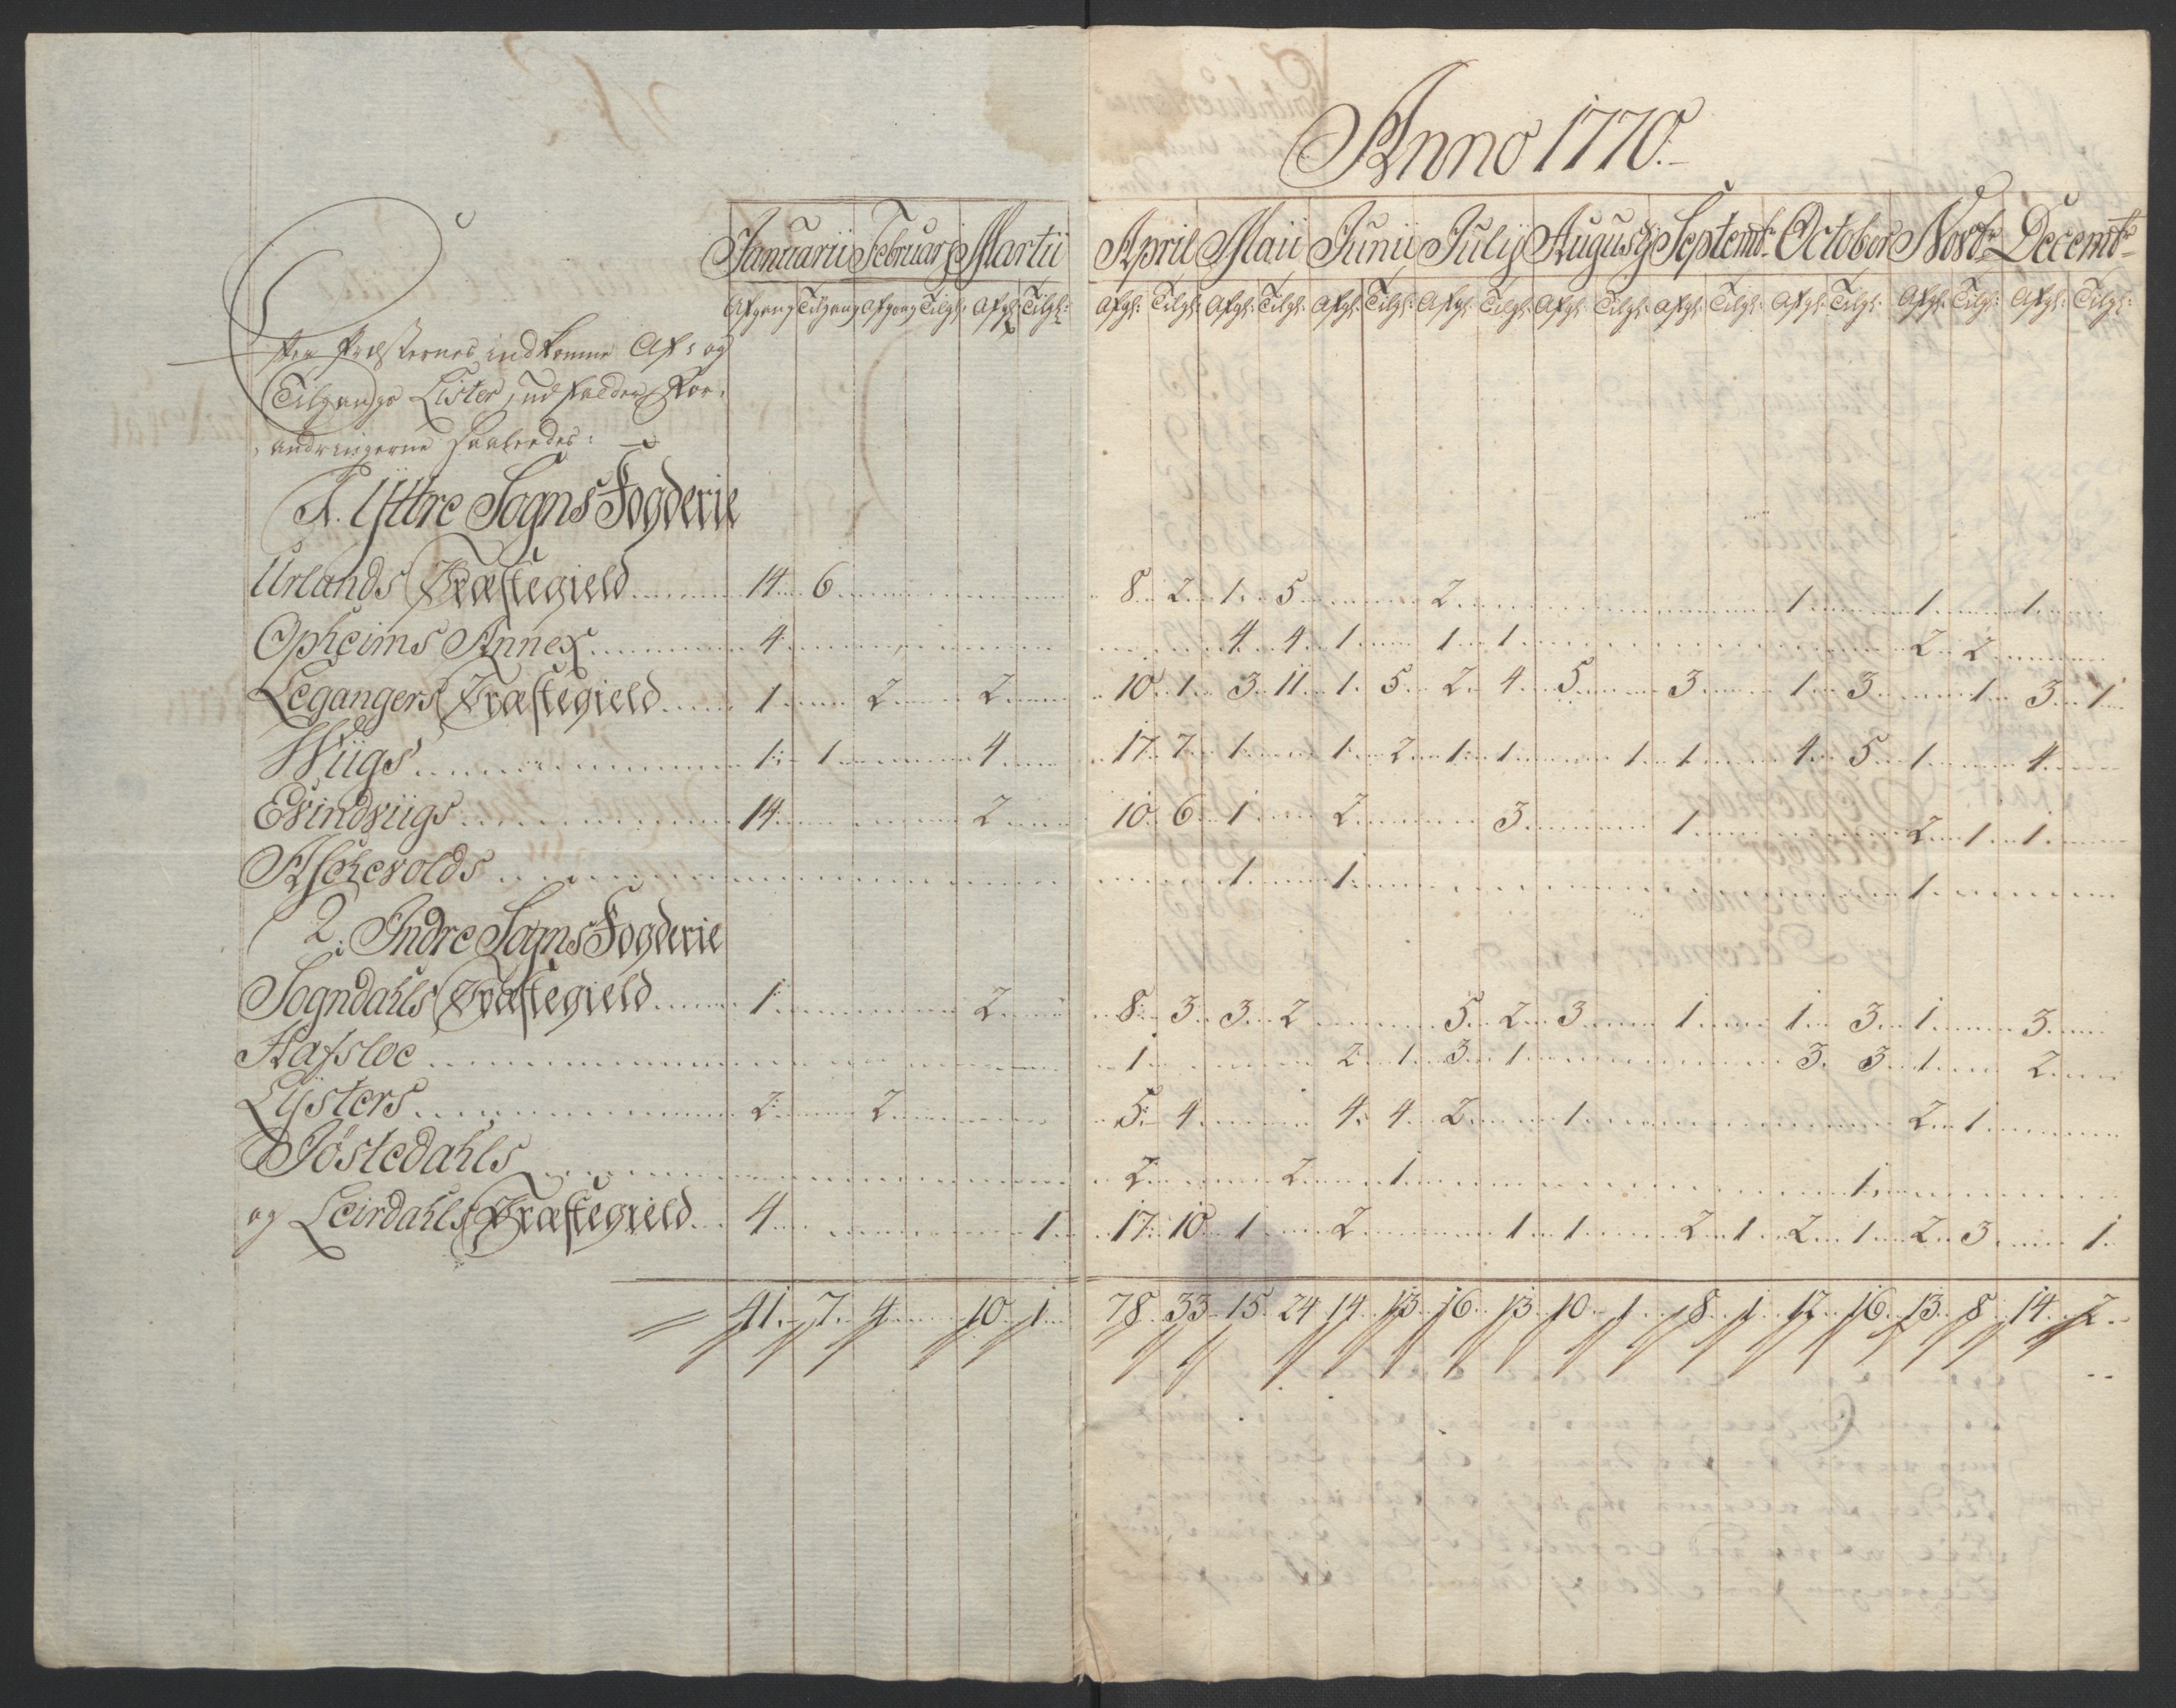 Anno 1770.
Januarii Februarj Martii April Maii Junii Julij Augustj Septembr October Novbr Decembr
Afgang Tilgang Afgang Tilg: Afg: Tilg: Afg: Tilg: Afg: Tilg: Afg: Tilg: Afg: Tilg: Afg: Tilg: Afg: Tilg: Afg: Tilg: Afg: Tilg: Afg: Tilg:
Præsternes indkomne Af- og
Tilgangs Lister, indfalder For-
andringerne saaledes:
1. Yttre Sogns Fogderie
Urlands Præstegield 14 6 8 2 1 5 2 1 1 1
Opheims Annex 4 4 4 1 1 1 2 2
Legangers Præstegield 1 2 2 10 1 3 11 1 5 2 4 5 3 1 3 1 3 1
Wiigs 1 1 4 17 7 1 1 2 1 1 1 1 4 5 1 4
Evindviigs 14 2 10 6 1 2 3 1 2 1 1
Aschevolds 1 1 1
2. Indre Sogns Fogderie
Sogndahls Præstegield 1 2 8 3 3 2 5 2 3 1 1 3 1 3
Hafsloe 1 2 1 3 1 3 3 1 2
Lysters 2 2 5 4 4 4 2 1 2 1
Jöstedahls 2 2 1 1
og Leirdahls Præstegield 4 1 17 10 1 2 1 1 2 1 2 1 2 3 1
41 7 4 10 1 78 33 15 24 14 13 16 13 10 1 8 1 12 16 13 8 14 2